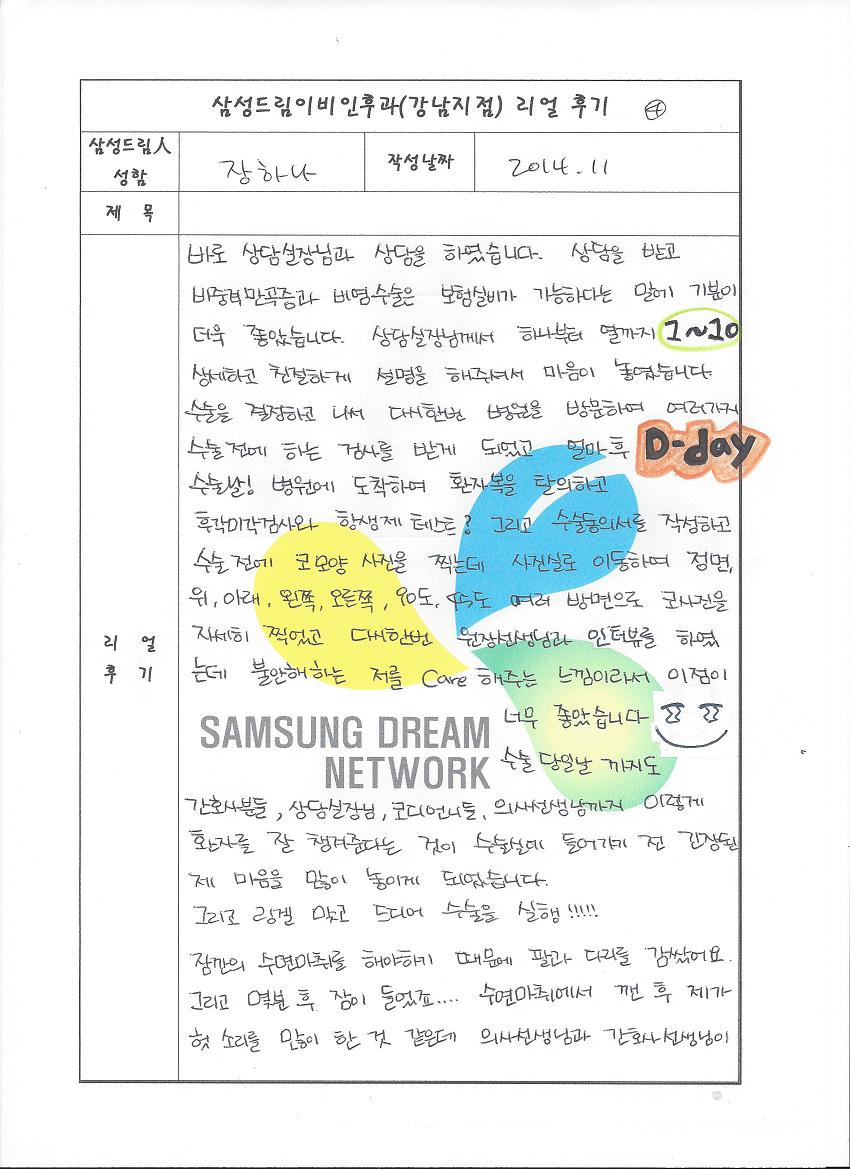 삼성드림이비인후과(강남지점) 리얼 후기 ④
삼성드림人 성함
장하나
작성날짜
2014.11
제 목
리 얼 후 기
바로 상담실장님과 상담을 하였습니다. 상담을 받고
비중격만곡증과 비염수술은 보험실비가 가능하다는 말에 기분이
더욱 좋았습니다. 상담실장님께서 하나부터 열까지 1~10
상세하고 친절하게 설명을 해주셔서 마음이 놓였습니다.
수술을 결정하고 나서 다시한번 병원을 방문하여 여러가지
수술전에 하는 검사를 받게 되었고 얼마후 D-day
수술날! 병원에 도착하여 환자복을 탈의하고
후각미각검사와 항생제 테스트? 그리고 수술동의서를 작성하고
수술전에 코모양 사진을 찍는데 사진실로 이동하여 정면,
위, 아래, 왼쪽, 오른쪽, 90도, 45도 여러 방면으로 코사진을
자세히 찍었고 다시한번 원장선생님과 인터뷰를 하였
는데 불안해하는 저를 Care 해주는 느낌이라서 이점이
너무 좋았습니다
SAMSUNG DREAM
NETWORK
수술당일날 까지도
간호사분들, 상담실장님, 코디언니들, 의사선생님까지 이렇게
환자를 잘 챙겨준다는 것이 수술실에 들어가기 전 긴장된
제 마음을 많이 놓이게 되었습니다.
그리고 링겔 맞고 드디어 수술을 실행!!!!!
잠깐의 수면마취를 해야하기 때문에 팔과 다리를 감쌌어요.
그리고 몇분 후 잠이 들었죠.... 수면마취에서 깬 후 제가
헛 소리를 많이 한 것 같은데 의사선생님과 간호사선생님이